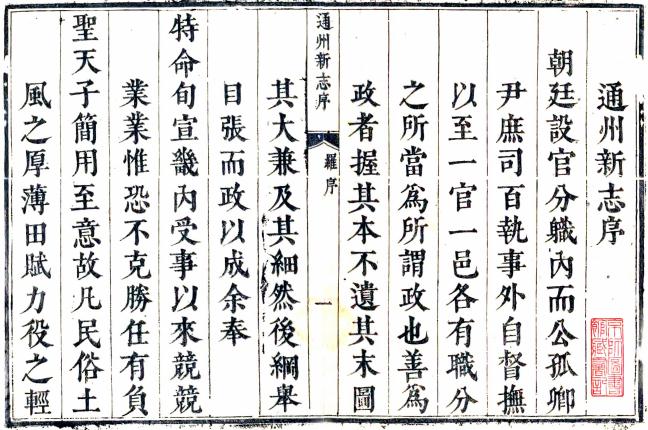 通州新志序
朝廷設官分職內而公孤卿
尹庶司百執事外自督撫
以至一官一邑各有職分
之所當爲所謂政也善爲
政者握其本不遺其末圖
通州新志序
羅序
一
其大兼及其細然後綱舉
目張而政以成余奉
特命旬宣畿內受事以來兢兢
業業惟恐不克勝任有負
聖天子簡用至意故凡民俗土
風之厚薄田賦力役之輕